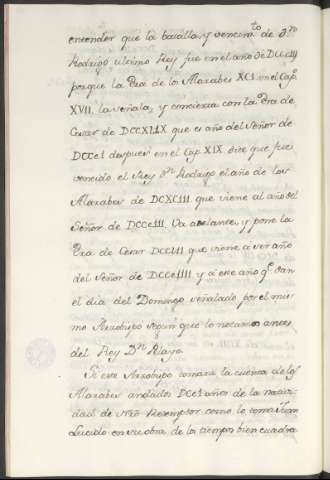 entender que la batalla, y vencim.to de D.n
Rodrigo ultimo Rey fue en el año de DCCCIII
porque la Era de los Alarabes XCI. en el Cap.
XVII. la señala, y concierta con la Era de
Cesar de DCCXLIX que es año del Señor de
DCCCI despues en el Cap. XIX dice que fue
vencido el Rey D.n Rodrigo el año de los
Alarabes de DCXCIII que viene al año del
Señor de DCCCIII. Va adelante, y pone la
Era de Cesar DCCLII que viene a ser año
del Señor de DCCCIIII y a ese año q.e dan
el dia del Domingo señalado por el mis
mo Arzobispo segun que lo notamos antes
del Rey D.n Pelayo.
Si este Arzobispo tomara la cuenta de los
Alarabes a los años de la nativi
dad de Ntro Redemptor como lo toma
Lucido en su obra de los tiempos bien cuadra